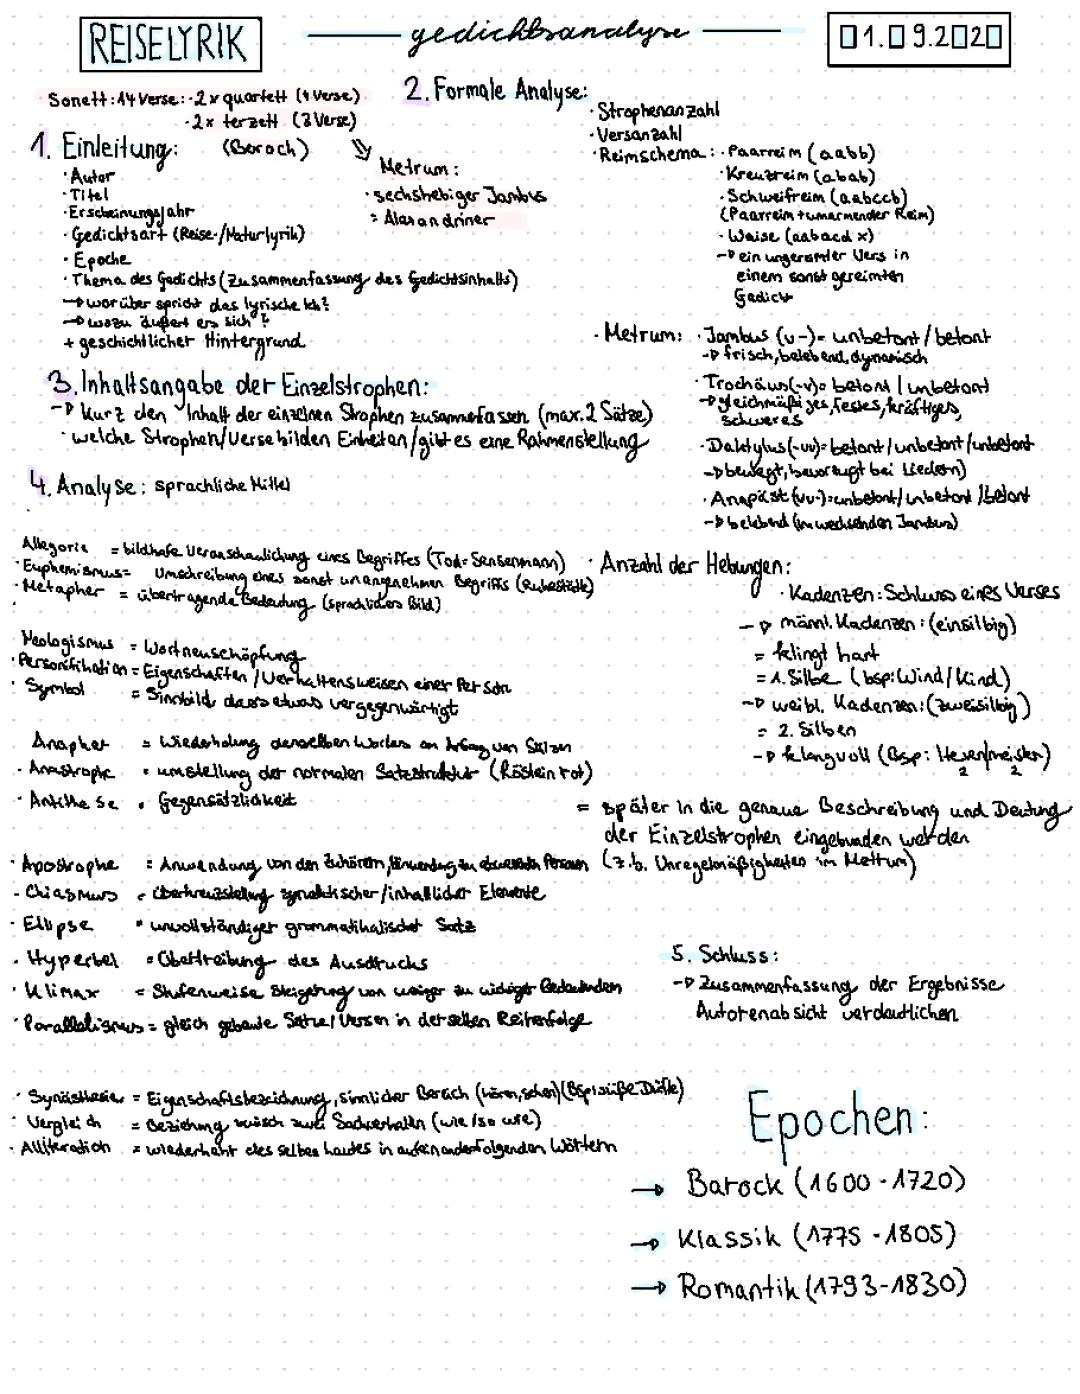 REISELYRIK
gedichtsanalyse
01.09.2020
Sonett: 14 Verse: - 2x quartett (4 Verse)
- 2x terzett (3 Verse)
(Baroch)
Metrum:
· sechshebiger Jambus
= Alexandriner
1. Einleitung:
· Autor
· Titel
· Erscheinungsjahr
· Gedichtsart (Reise-/Naturlyrik)
· Epoche
· Thema des Gedichts (Zusammenfassung des Gedichtsinhalts)
→ worüber spricht das lyrische Ich?
→ wozu äußert er sich?
+ geschichtlicher Hintergrund
2. Formale Analyse:
· Strophenanzahl
· Versanzahl
· Reimschema: · Paarreim (aabb)
· Kreuzreim (abab)
· Schweifreim (aabccb)
(Paarreim + umarmender Reim)
· Waise (aabacd x)
→ ein ungereimter Vers in
einem sonst gereimten
Gedicht
· Metrum: · Jambus (u-)= unbetont / betont
→ frisch, belebend, dynamisch
· Trochäus (-u)= betont / unbetont
→ gleichmäßiges, festes, kräftiges,
schweres
· Daktylus (-uu)= betont / unbetont / unbetont
→ bewegt, bevorzugt bei Liedern)
· Anapäst (uu-)= unbetont / unbetont / betont
→ belebend (im wechselnden Jambus)
· Anzahl der Hebungen:
· Kadenzen: Schluss eines Verses
→ männl. Kadenzen: (einsilbig)
= klingt hart
= 1. Silbe (bsp: Wind / Kind)
→ weibl. Kadenzen: (zweisilbig)
= 2. Silben
→ klangvoll (Bsp: Hexen/meister)
2 2
= später in die genaue Beschreibung und Deutung
der Einzelstrophen eingebunden werden
(z.b. Unregelmäßigkeiten im Mettum)
3. Inhaltsangabe der Einzelstrophen:
→ kurz den Inhalt der einzelnen Strophen zusammenfassen (max. 2 Sätze)
· welche Strophen/Verse bilden Einheiten / gibt es eine Rahmenstellung
4. Analyse: sprachliche Mittel
Allegorie = bildhafe Veranschaulichung eines Begriffes (Tod = Sensenmann)
· Euphemismus = Umschreibung eines sonst unangenehmen Begriffs (Ruhestätte)
· Metapher = übertragende Bedeutung (sprachliches Bild)
Neologismus = Wortneuschöpfung
· Personifikation = Eigenschaften / Verhaltensweisen einer Person
· Symbol = Sinnbild, dass etwas vergegenwärtigt
Anapher = Wiederholung desselben Wortes am Anfang von Sätzen
· Anastrophe = umstellung der normalen Satzstruktur (Röslein rot)
· Antithese = Gegensätzlichkeit
· Apostrophe = Anwendung von den Zuhörern, Hinwendung zu abwesenden Personen
· Chiasmus = Überkreuzstellung syntaktischer / inhaltlicher Elemente
· Ellipse = unvollständiger grammatikalischer Satz
· Hyperbel = Übertreibung des Ausdrucks
· Klimax = Stufenweise Steigerung von weniger zu wichtiger Bedeutendem
· Parallelismus = gleich gebaute Sätze / Versen in derselben Reihenfolge
· Synästhesie = Eigenschaftsbezeichnung, sinnlicher Bereich (hören, sehen) (Bsp: süße Düfte)
· Vergleich = Beziehung zwisch zwei Sachverhalten (wie / so wie)
· Alliteration = wiederholt des selben Lautes in aufeinanderfolgenden Wörtern
5. Schluss:
→ Zusammenfassung der Ergebnisse
Autorenabsicht verdeutlichen
Epochen:
→ Barock (1600 - 1720)
→ Klassik (1775 - 1805)
→ Romantik (1793-1830)